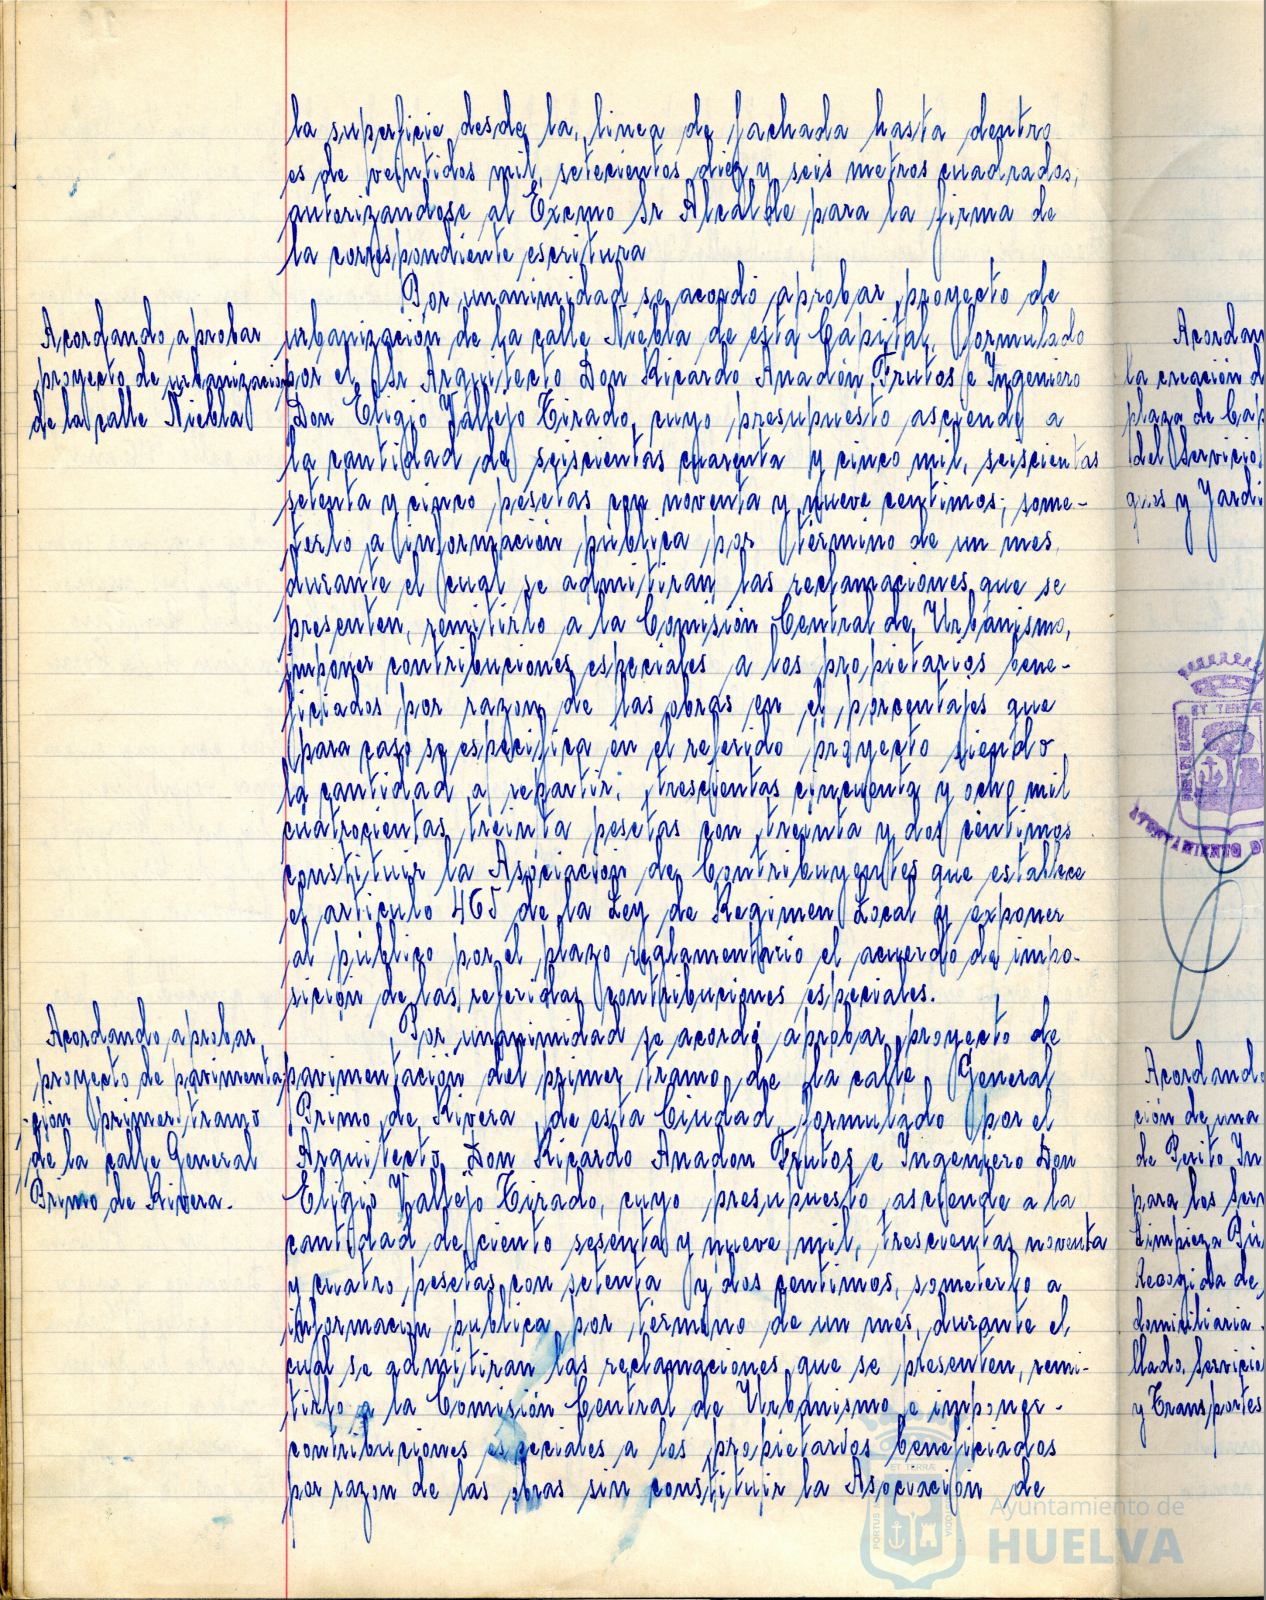 la superficie desde la linea de fachada hasta dentro
es de veintidos mil, setecientos diez y seis metros cuadrados,
autorizandose al Excmo Sr Alcalde para la firma de
la correspondiente escritura
Acordando aprobar
proyecto de urbanización
de la calle Niebla
Por unanimidad se acordó aprobar proyecto de
urbanización de la calle Niebla de esta Capital, formulado
por el Sr Arquitecto Don Ricardo Anadón Frutos e Ingeniero
Don Eligio Vallejo Tirado, cuyo presupuesto asciende a
la cantidad de seiscientas cuarenta y cinco mil, seiscientas
setenta y cinco pesetas con noventa y nueve centimos; some-
terlo a información publica por término de un mes,
durante el cual se admitiran las reclamaciones que se
presenten, remitirlo a la Comisión Central de Urbanismo,
imponer contribuciones especiales a los propietarios bene-
ficiados por razon de las obras en el porcentajes que
para caso se especifica en el referido proyecto siendo
la cantidad a repartir, trescientas cincuenta y ocho mil
cuatrocientas treinta pesetas con treinta y dos centimos
constituir la Asociación de Contribuyentes que establece
el articulo 465 de la Ley de Regimen Local y exponer
al público por el plazo reglamentario el acuerdo de impo-
sición de las referidas contribuciones especiales.
Acordando aprobar
proyecto de pavimenta-
ción primer tramo
de la calle General
Primo de Rivera.
Por unanimidad se acordó aprobar proyecto de
pavimentación del primer tramo de la calle General
Primo de Rivera de esta Ciudad formulado por el
Arquitecto Don Ricardo Anadon Frutos e Ingeniero Don
Eligio Vallejo Tirado, cuyo presupuesto asciende a la
cantidad de ciento sesenta y nueve mil, trescientas noventa
y cuatro pesetas con setenta y dos centimos, someterlo a
informacion publica por término de un mes, durante el
cual se admitiran las reclamaciones que se presenten, remi-
tirlo a la Comisión Central de Urbanismo e imponer
contribuciones especiales a los propietarios beneficiados
por razon de las obras sin constituir la Asociación de
Acordan
la creación d
plaza de Cap
del Servicio
ques y Jardi
ET TERRÆ
AYUNTAMIENTO DE
Acordando
ción de una
de Perito In
para los Ser
Limpieza Pú
Recogida de
domiciliaria
llado, Servicio
y Transportes
Ayuntamiento de
HUELVA